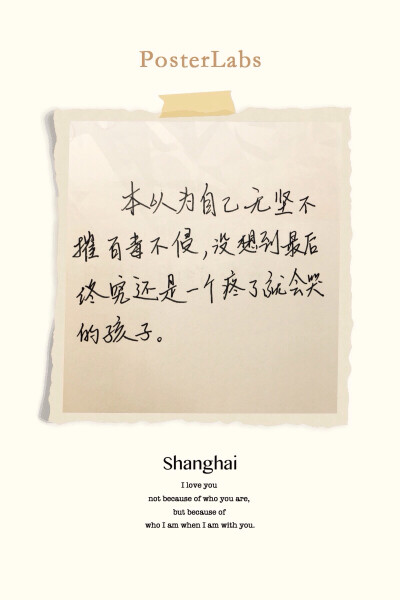 PosterLabs
本以为自己无坚不
摧百毒不侵,没想到最后
终究还是一个疼了就会哭
的孩子。
Shanghai
I love you
not because of who you are,
but because of
who I am when I am with you.